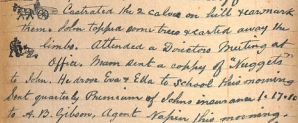 Castrated the 2 calves on hill & earmark
them. John topped some trees & carted away the
limbs. Attended a Directors Meeting at
Office. Mam sent a coppy of "Nuggets"
to John. He drove Eva & Ella to school this morning
Sent quarterly Premium of Johns insurance 1-17-10
to A. B. Gibson, Agent Napier this morning.